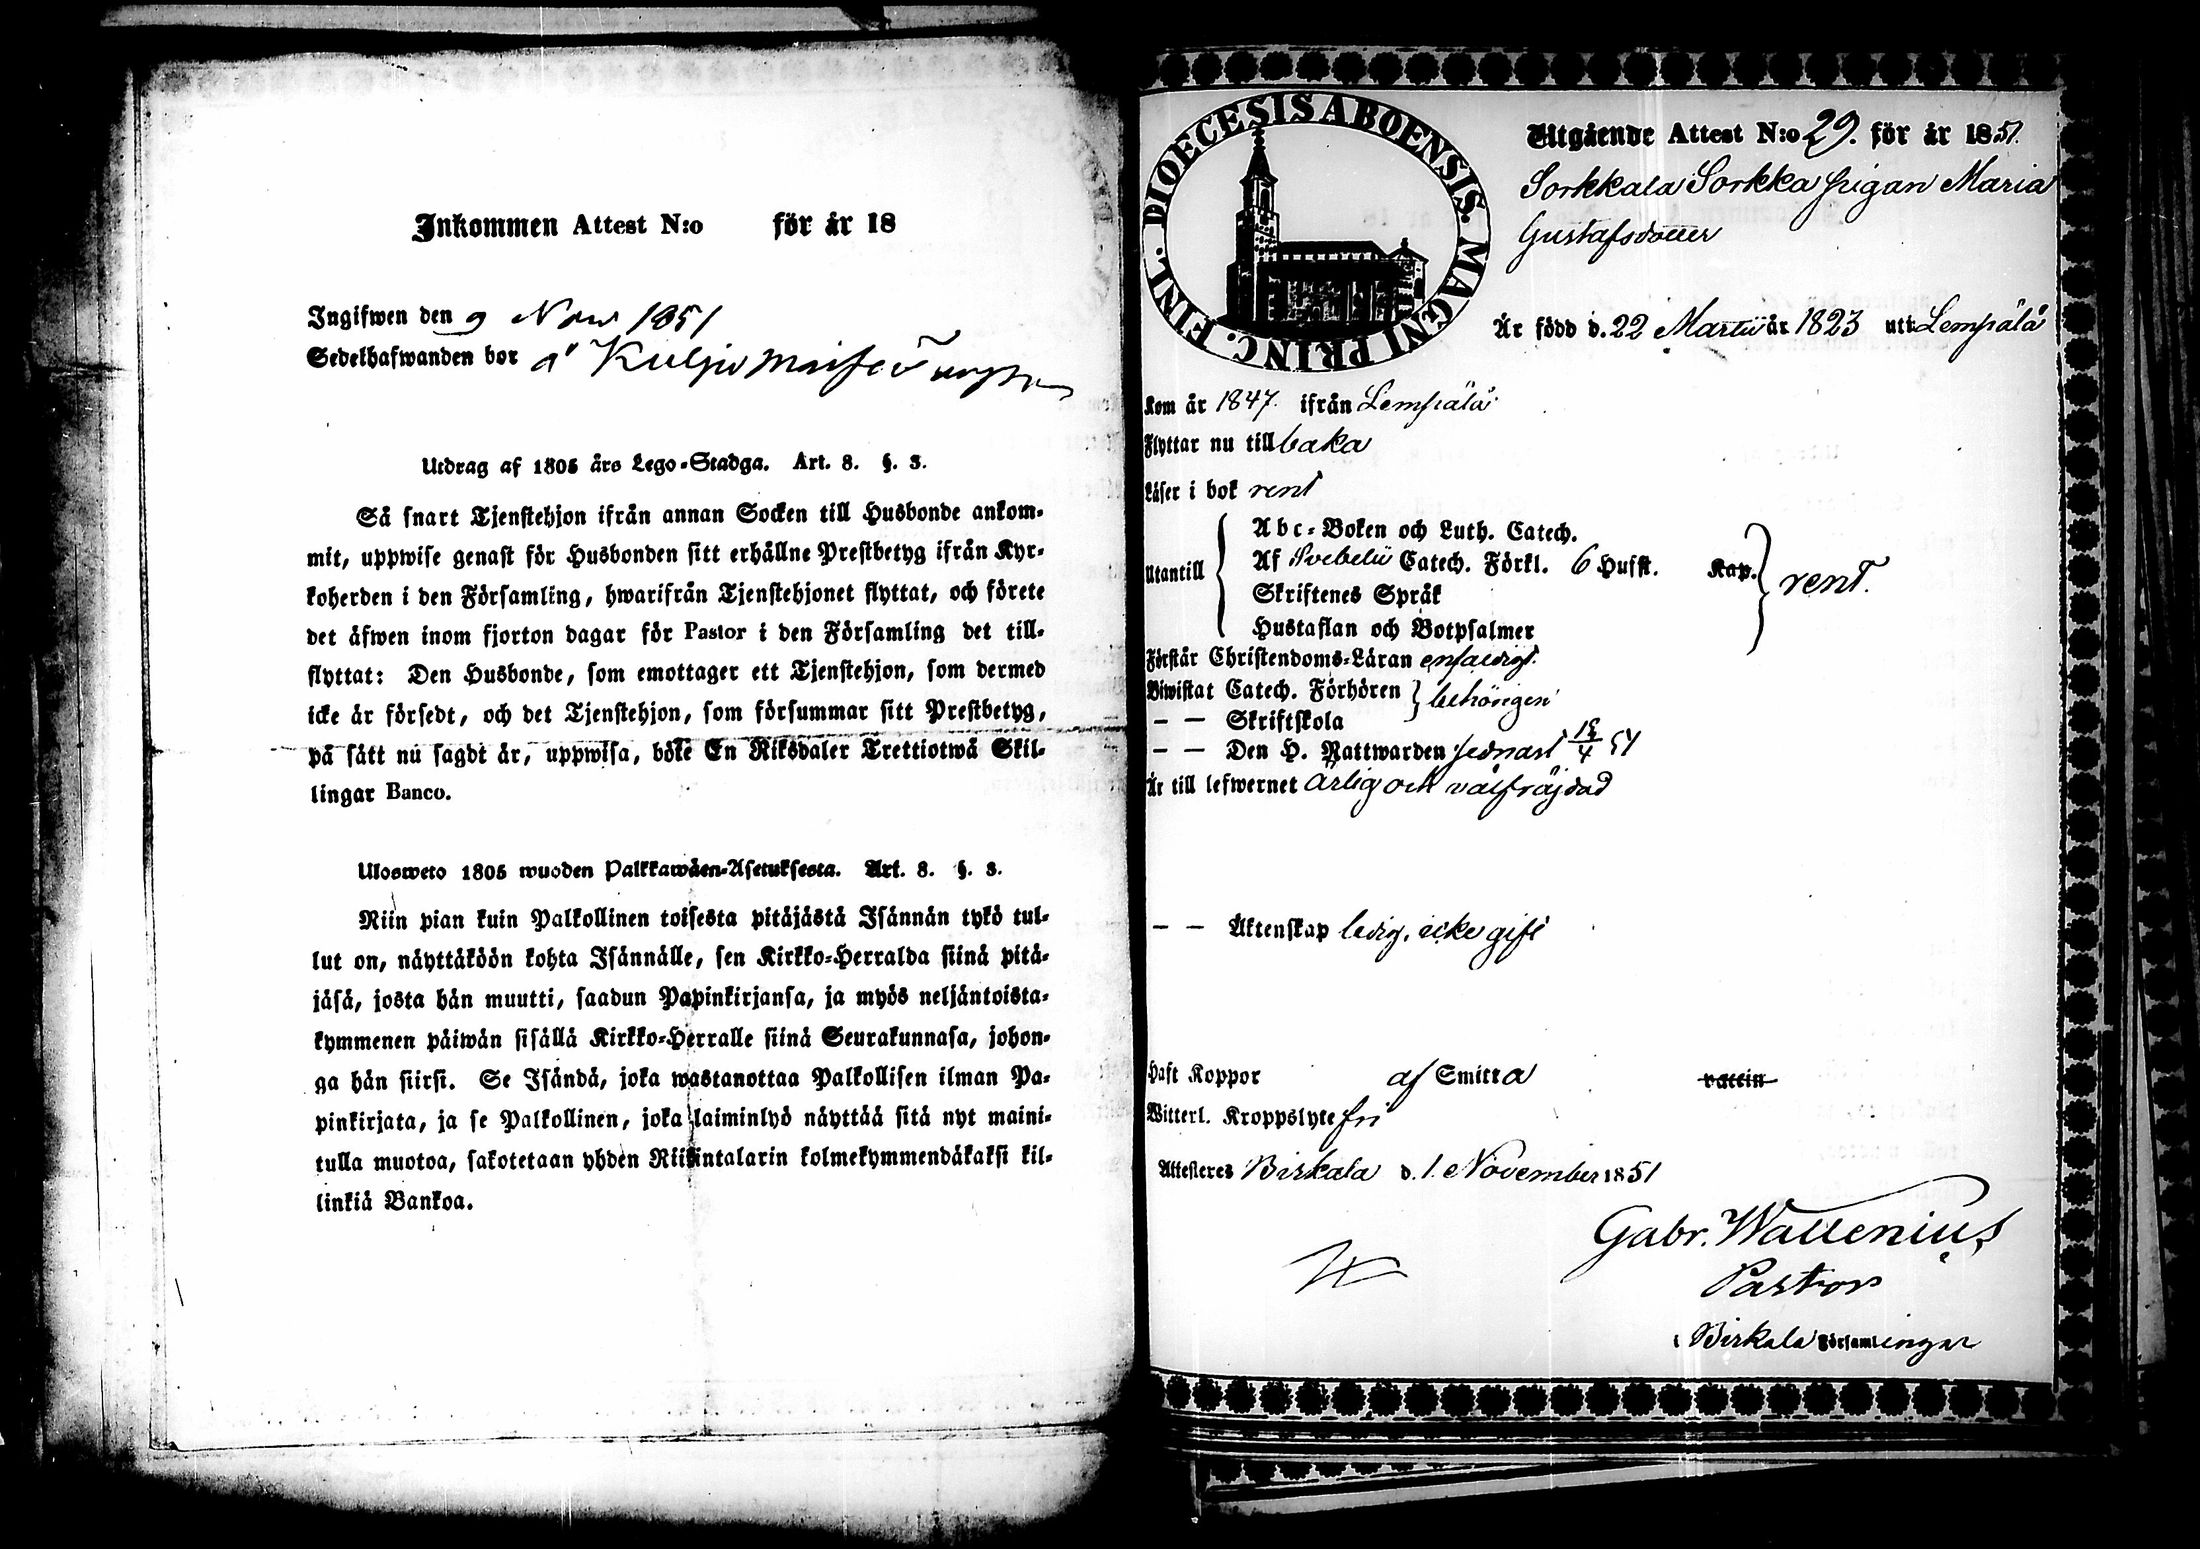 Inkommen Attest N:o för år 18
Ingifwen den 9 Nov 1851
Sedelhafwanden bor å Kulju
Utdrag af 1805 års Lego-Stadga. Art. 8. §. 3.
Så snart Tjenstehjon ifrån annan Socken till Husbonde ankom-
mit, uppwise genast för Husbonden sitt erhållne Prestbetyg ifrån Kyr-
koherden i den Församling, hwarifrån Tjenstehjonet flyttat, och förete
det äfwen inom fjorton dagar för Pastor i den Församling det till-
flyttat: Den Husbonde, som emottager ett Tjenstehjon, som dermed
icke är försedt, och det Tjenstehjon, som försummar sitt Prestbetyg,
på sått nu sagdt är, uppwisa, böte En Riksdaler Trettiotwå Skil-
lingar Banco.
Ulosweto 1805 wuoden Palkkawäen-Asetuksesta. Art. 8. §. 3.
Niin pian kuin Palkollinen toisesta pitäjästä Isännän tykö tul-
lut on, näyttäköön kohta Isännälle, sen Kirkko-Herralda siinä pitä-
jäsä, josta hän muutti, saadun Papinkirjansa, ja myös neljäntoista-
kymmenen päiwän sisällä Kirkko-Herralle siinä Seurakunnasa, johon-
ga hän siirsi. Se Isändä, joka wastanottaa Palkollisen ilman Pa-
pinkirjata, ja se Palkollinen, joka laiminlyö näyttää sitä nyt maini-
tulla muotoa, sakotetaan yhden Riiksintalarin kolmekymmendäkaksi kil-
linkiä Bankoa.
DIOECESIS ABOENSIS. MAGNI PRINC. FINL.
Utgående Attest N:o 29. för år 1851.
Sorkkala Sorkka pigan Maria
Gustafsdotter
Är född d. 22 Martii år 1823 uti Lempälä
Kom år 1847. ifrån Lempälä
Flyttar nu till baka
Läser i bok rent
Utantill
Abc-Boken och Luth. Catech.
Af Svebelii Catech. Förkl. 6 Hufst. Kap.
Skriftenes Språk
Hustaflan och Botpsalmer
rent.
Förstår Christendoms-Läran enfaldigt.
Biwistat Catech. Förhören
— — Skriftskola
behörigen
— — Den H. Nattwarden sednast 51
Är till lefwernet ärlig och välfräjdad
— — Äktenskap ledig, icke gift
Haft Koppor af Smitta vaccin
Witterl. Kroppslyte fri
Attesteres Birkala d. 1. November 1851
Gabr. Wallenius
Pastor
i Birkala Församlingar